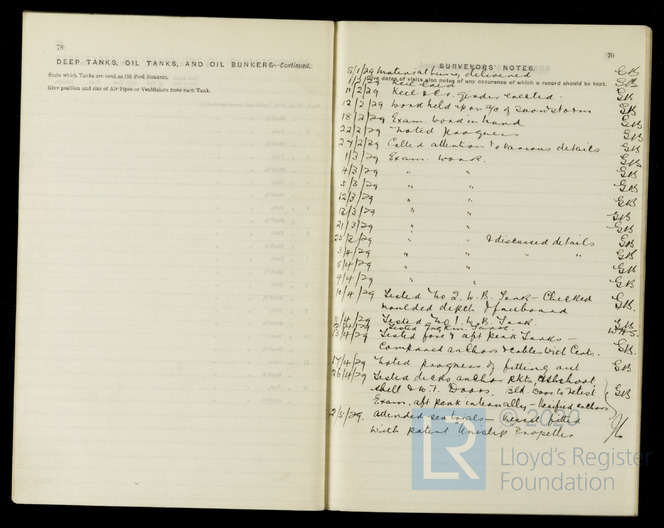 78
DEEP TANKS, OIL TANKS, AND OIL BUNKERS—Continued.
State which Tanks are used as Oil Fuel Bunkers.
Give position and size of Air Pipes or Ventilators from each Tank.
79
SURVEYORS' NOTES.
Give dates of visits also notes of any occurence of which a record should be kept.
5/1/29 Material being delivered GB
Keel laid GB
11/2/29 Keel & Cr. girder erected. GB
12/2/29 Work held up on a/c of snowstorm GB
18/2/29 Exam. work in hand GB
22/2/29 Noted progress GB
27/2/29 Called attention to various details GB
1/3/29 Exam. work. GB
4/3/29 " " GB
5/3/29 " " GB
12/3/29 " " GB
13/3/29 " " GB
21/3/29 " " GB
25/2/29 " " & discussed details GB
3/4/29 " " " " GB
5/4/29 " " GB
9/4/29 " " GB
10/4/29 Tested No 2. W.B. Tank – Checked
moulded depth & freeboard GB.
11/4/29 Tested No 1. W.B. Tank.
Tested Tank.
13/4/29 Tested fore & aft peak Tanks –
Compared anchors & cables with Certs. GB.
17/4/29 Noted progress of fitting out GB
26/4/29 Tested decks, anchor pkts, ashshoot,
shell & W.T. Doors.
Exam. aft peak internally – Verified anchors GB
2/5/29. Attended sea trials vessel fitted
with patent Unislip Propeller
© 2020
LR
Lloyd's Register
Foundation